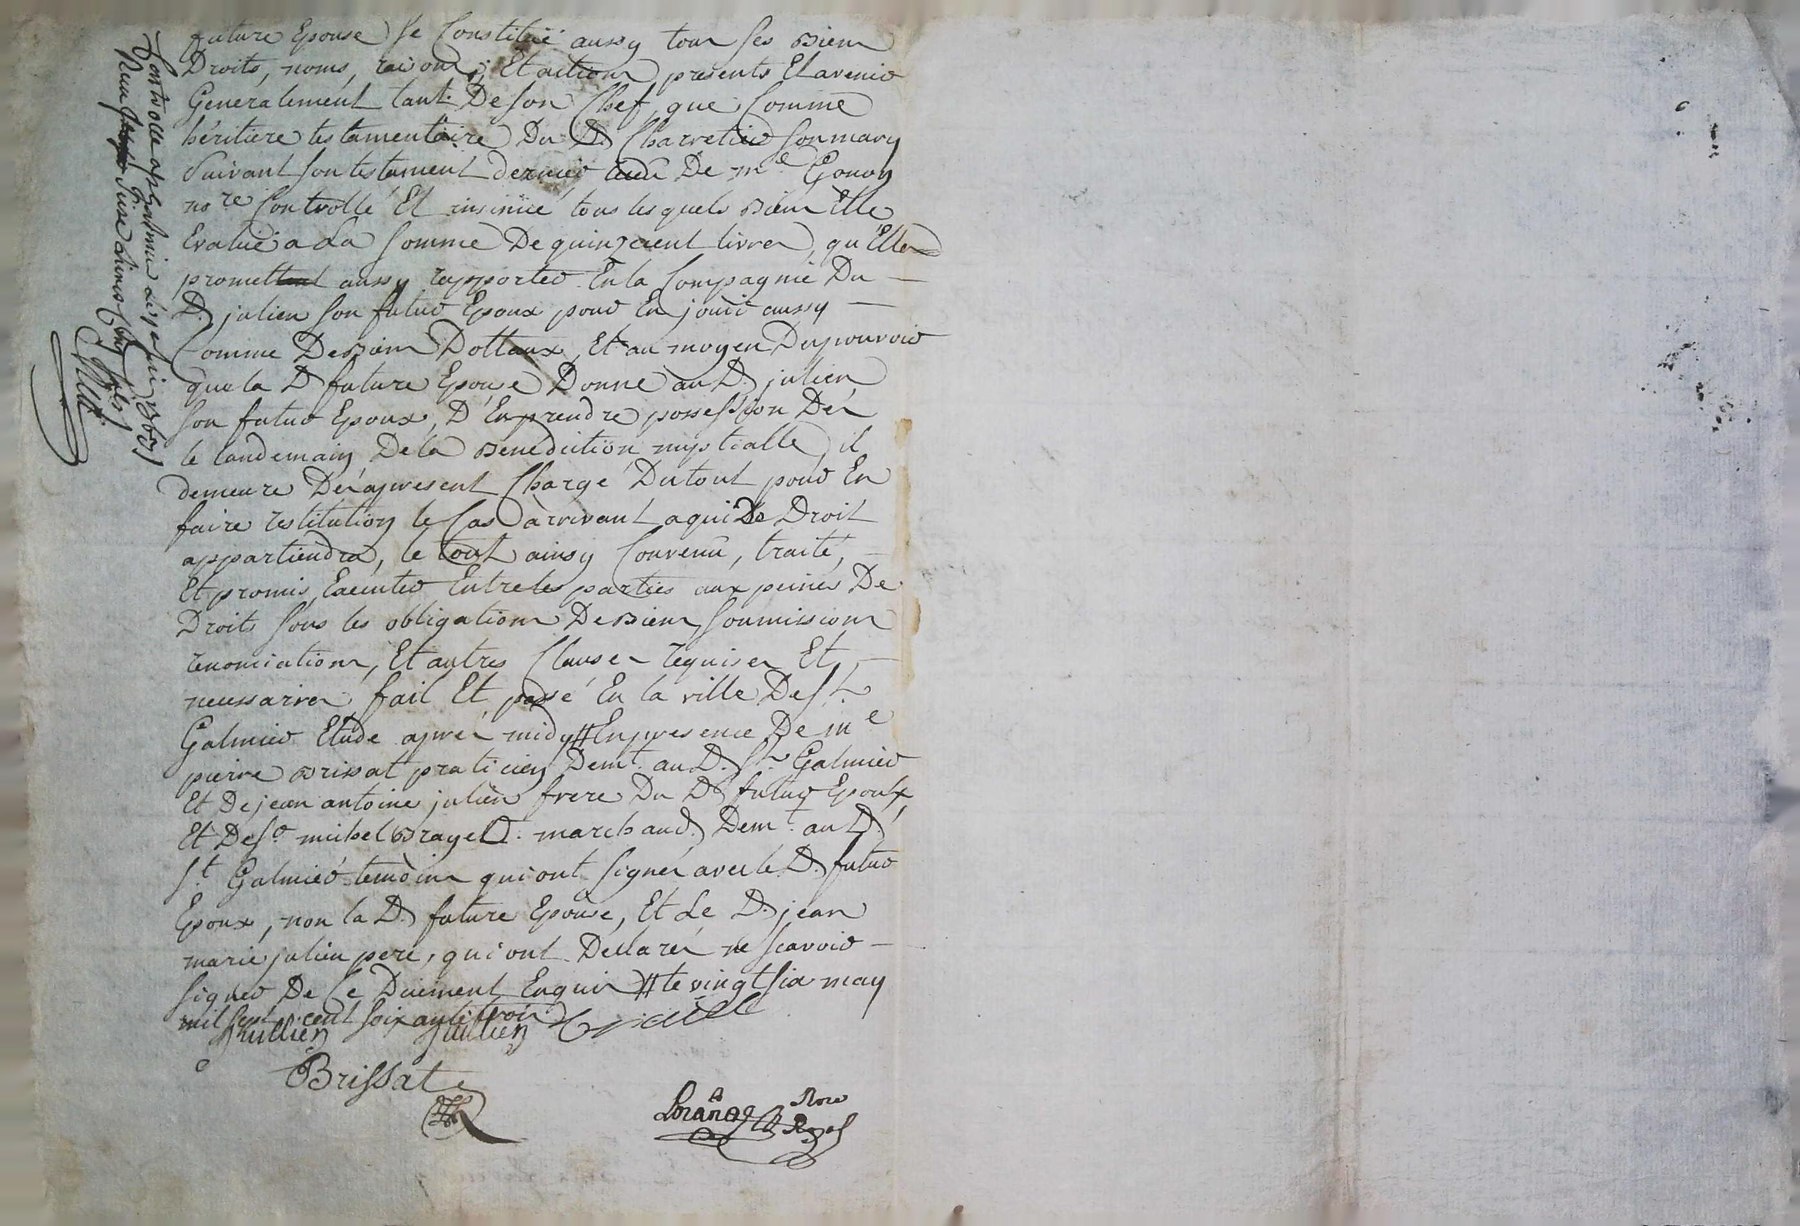 future Epouse se Constitue aussy tous ses Biens
Droits, noms, raisons, Et actions presents Et avenir
Generalement tant De son Chef que Comme
héritiere testamentaire Du D. Charretier son mary
Suivant son testament dernier De me Gonon
nore Controllé Et insinué tous lesquels Biens Elle
Evalue a La somme De quinzecent livres, qu'Elle
promettent aussy rapporter En la Compagnie Du
D. julien son futur Epoux pour En jouir aussy
Comme De Biens Dottaux, Et au moyen Du pouvoir
que la D. future Epouse Donne au D. julien
son futur Epoux, D'En prendre possession Dés
le landemain De la Benediction nuptialle, il
demeure Dés apresent Chargé Du tout pour En
faire restitution le Cas arrivant a qui De Droit
appartiendra, le tout ainsy Convenu, traité,
Et promis, Executer Entre les parties aux peines De
Droits sous les obligations De Biens, soumissions
renonciations, Et autres Clauses requises Et
necessaires fait Et passé En la ville De St.
Galmier Etude aprés midy # En presence De me
pierre Brissat praticien Demt. au D. St. Galmier
Et De jean antoine julien frere Du D. futur Epoux,
Et De sr. michel marchand Demt. au D.
St. Galmier temoins qui ont signés avec le D. futur
Epoux, non la D. future Epouse, Et Le D. jean
marie julien pere, qui ont Declarés ne scavoir
signer De Ce Duement Enquis # le vingt six may
mil sept cent soixante trois
Jullien Jullien
Brissat
Controllé a St Galmier le juin 1763
Reçu livres Cinq sols